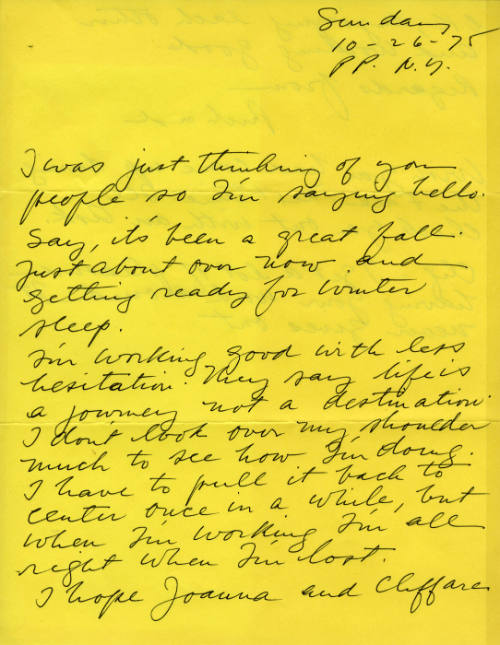 Sunday
10-26-75
PP. N.Y.
I was just thinking of you
people so I'm saying hello.
Say, its been a great fall.
Just about over now and
getting ready for winter
sleep.
I'm working good with less
hesitation. They say life is
a journey not a destination.
I don't look over my shoulder
much to see how I'm doing.
I have to pull it back to
center once in a while, but
when I'm working I'm all
right when I'm lost.
I hope Joanna and Cliff are